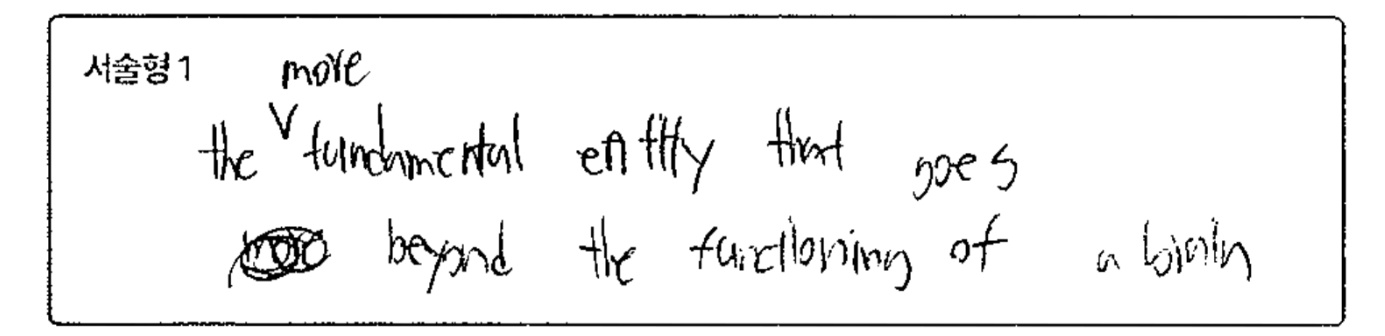 서술형 1
the more fundamental entity that goes
beyond the functioning of a brain